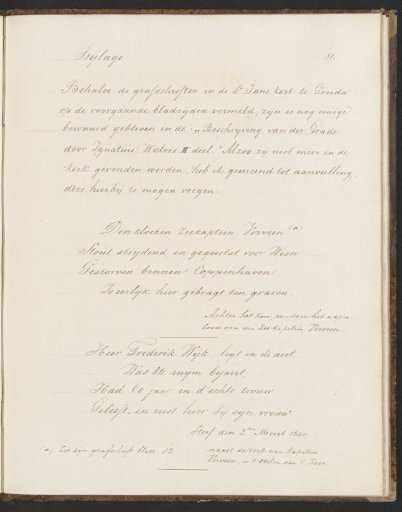 Bijlage
51.
Behalve de grafschriften in de St Jans kerk te Gouda
op de voorgaande bladzijden vermeld, zijn er nog eenige
bewaard gebleven in de: „Beschrijving van der Goude
door Ignatius Walvis II deel." Alzoo zij niet meer in de
kerk gevonden worden, heb ik gemeend tot aanvulling,
deze hierby te mogen voegen.
Den kloeken Zeekaptein Verveen (a)
Stout strydend en gequetst voor Ween
Gestorven binnen Coppenhaven
Is eerlyk hier gebragt ten graven.
Achter het koor, aan het wapen
bord van den Zeekapitein Verveen.
Heer Frederik Wijk legt in de aert
Was 84 ruym bejaert,
Had 60 jaer in d'echte trouw
Geleeft, en rust hier by syn vrouw
Sterf den 2den Maert 1640
(a) Zie zijn grafschrift bladz. 13
naast de zerk van Kapitein
Verveen, in 't
van 't Koor.